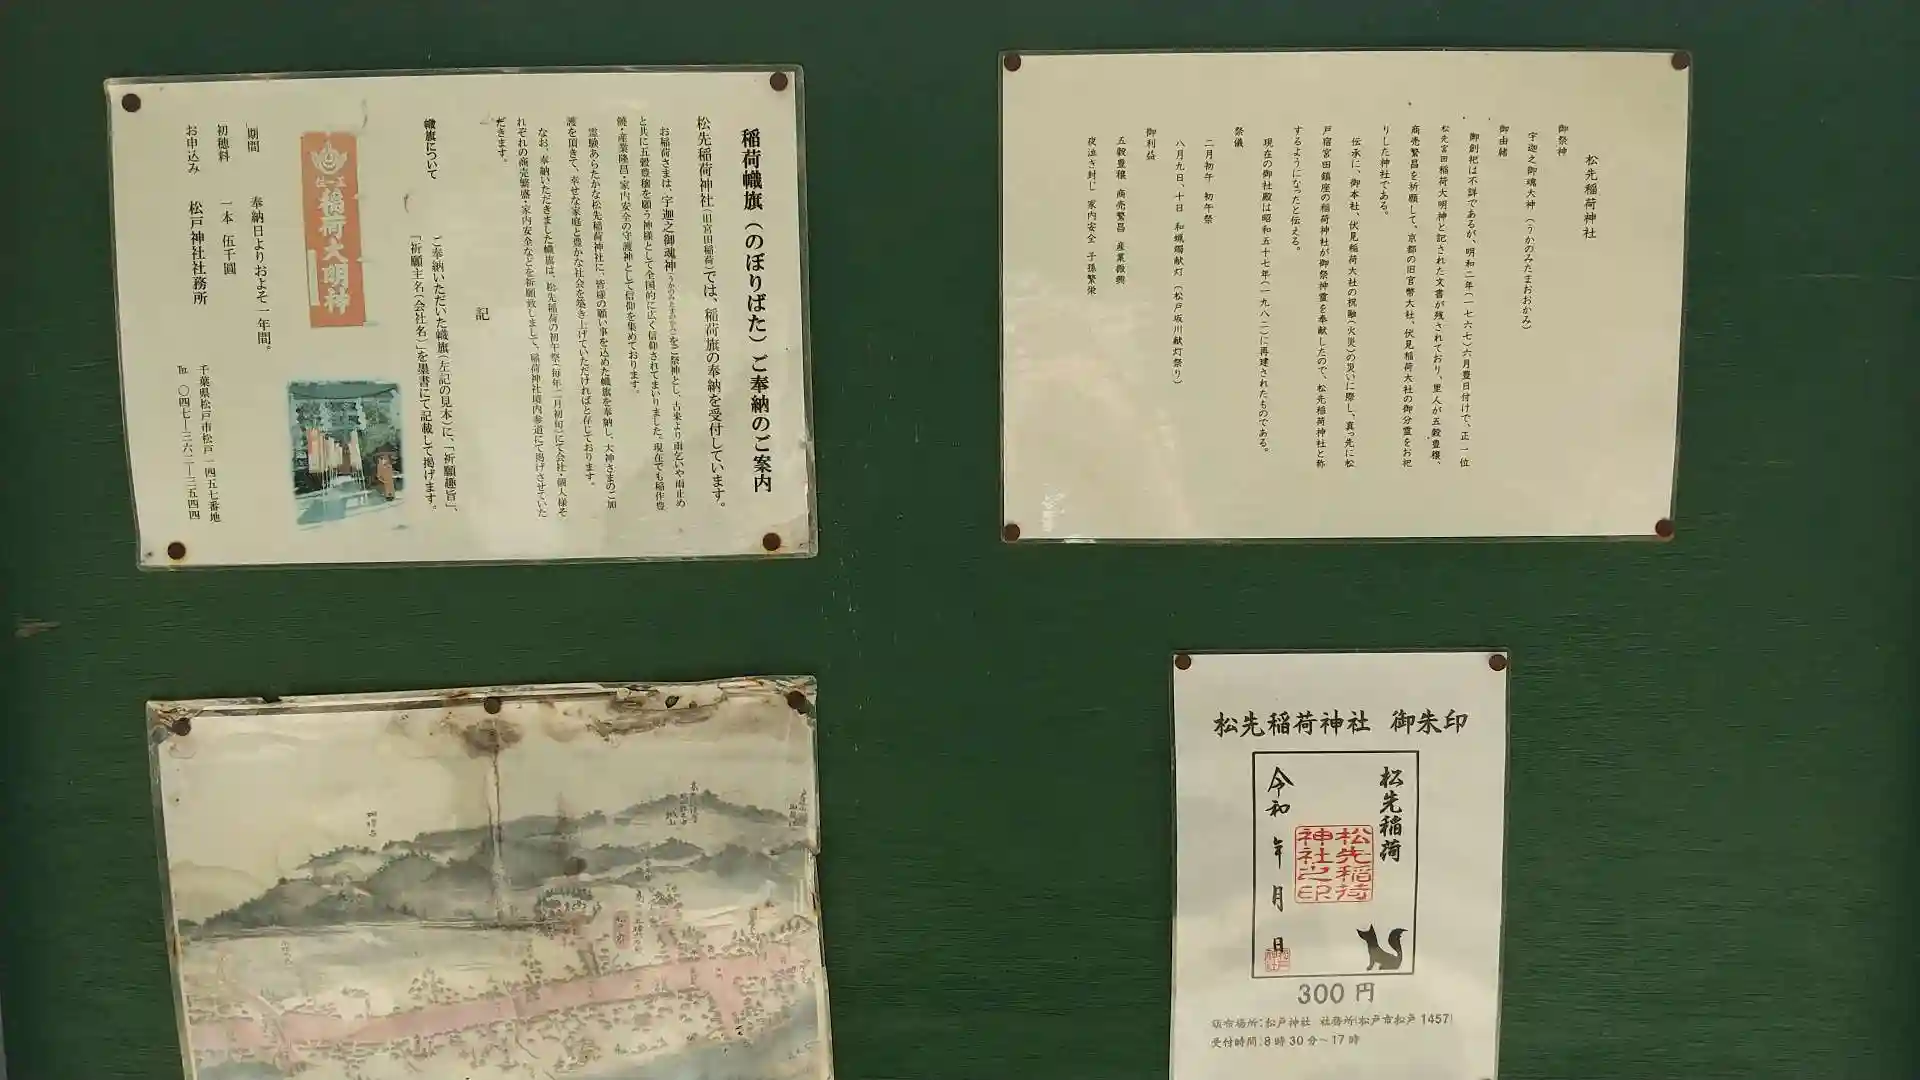 稲荷幟旗（のぼりばた）ご奉納のご案内
松先稲荷神社（旧宮田稲荷）では、稲荷旗の奉納を受付しています。
お稲荷さまは、宇迦之御魂神（うかのみたまのかみ）をご祭神とし、古来より雨乞いや雨止め
と共に五穀豊穣を願う神様として全国的に広く信仰されてまいりました。現在でも稲作豊
饒・産業隆昌・家内安全の守護神として信仰を集めております。
霊験あらたかな松先稲荷神社に、皆様の願い事を込めた幟旗を奉納し、大神さまのご加
護を頂きて、幸せな家庭と豊かな社会を築き上げていただければと存じております。
なお、奉納いただきました幟旗は、松先稲荷の初午祭（毎年二月初旬）にて会社・個人様そ
れぞれの商売繁盛・家内安全などを祈願致しまして、稲荷神社境内参道にて掲げさせていた
だきます。
記
幟旗について
ご奉納いただいた幟旗（左記の見本）に、「祈願趣旨」、
「祈願主名（会社名）」を墨書にて記載して掲げます。
正一位
稲荷大明神
期間　奉納日よりおよそ一年間。
初穂料　一本　伍千圓
お申込み　松戸神社社務所
千葉県松戸市松戸一四五七番地
℡　〇四七―三六二―三五四四
松先稲荷神社
御祭神
宇迦之御魂大神（うかのみたまおおかみ）
御由緒
御創祀は不詳であるが、明和二年（一七六七）六月豊日付けで、正一位
松先宮田稲荷大明神と記された文書が残されており、里人が五穀豊穣、
商売繁昌を祈願して、京都の旧官幣大社、伏見稲荷大社の御分霊をお祀
りした神社である。
伝承に、御本社、伏見稲荷大社の祝融（火災）の災いに際し、真っ先に松
戸宿宮田鎮座の稲荷神社が御祭神霊を奉献したので、松先稲荷神社と称
するようになったと伝える。
現在の御社殿は昭和五十七年（一九八二）に再建されたものである。
祭儀
二月初午　初午祭
八月九日、十日　和蝋燭献灯（松戸坂川献灯祭り）
御利益
五穀豊穣　商売繁昌　産業振興
夜泣き封じ　家内安全　子孫繁栄
城山
松先稲荷神社　御朱印
松先稲荷
松先稲荷
神社之印
令和　年　月　日
300 円
頒布場所：松戸神社　社務所（松戸市松戸 1457）
受付時間：8 時 30 分～17 時